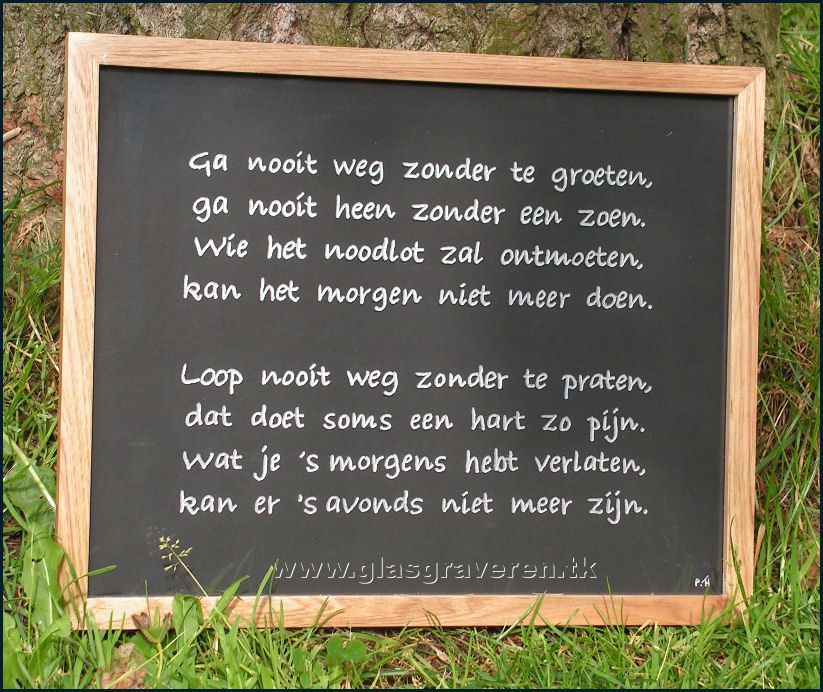 Ga nooit weg zonder te groeten,
ga nooit heen zonder een zoen.
Wie het noodlot zal ontmoeten,
kan het morgen niet meer doen.
Loop nooit weg zonder te praten,
dat doet soms een hart zo pijn.
Wat je 's morgens hebt verlaten,
kan er 's avonds niet meer zijn.
www.glasgraveren.tk
P.H